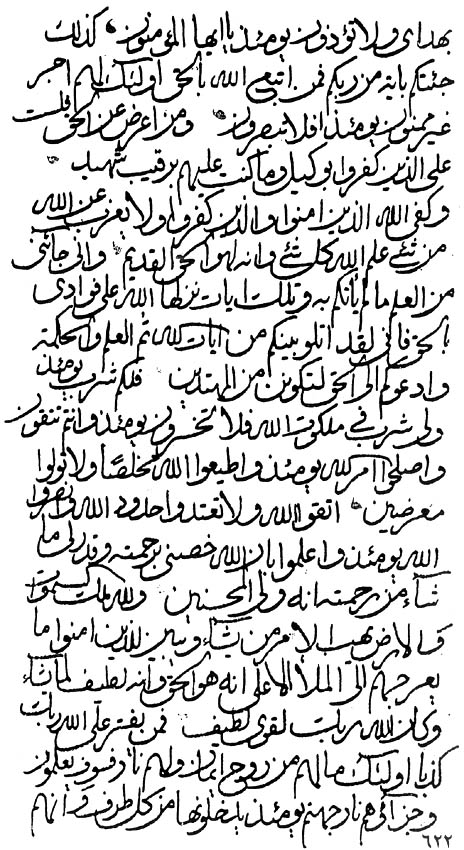 بهداى ولا تؤذون يومئذ يا ايها المؤمنون كذلك
جئتكم باية من ربكم فمن اتبع الله بالحق اولئك لهم اجر
غير ممنون يومئذ افلا تبصرون ومن اعرض عن الحق فلست
على الذين كفروا بوكيل وما كنت عليهم برقيب شهيد
وكفى الله الذين امنوا والذين كفروا ولا يعزب عن الله
من شئ علم الله كل شئ وانه لهو الحق القديم وانى جائنى
من العلم ما لم ياتكم به وتلك ايات نزلها الله على فوادى
بالحق فانى لقد اتلو بينكم من ايات الله ثم العلم والحكمة
وادعوكم الى الحق لتكونن من المهتدين فلكم شرب يومئذ
ولى شرب فى ملكوت الله فلا تخسرون يومئذ وانتم تتقون
واصلحوا امر الله يومئذ واطيعوا الله مخلصا ولا تولوا
معرضين اتقوا الله ولا تعتدوا حدود الله وانصروا
الله يومئذ واعلموا بان الله خصنى برحمته وقدر لى ما
شاء من رحمته انه ولى المحسنين ولله ملك السموات
والارض يهب الامر من يشاء ويبين للذين امنوا ما
يعرجهم الى الملأ الاعلى انه هو الحق وانه لطيف لما يشاء
وكان الله ربك لقوى لطيف فمن يفتر على الله ربك
كذبا اولئك ما لهم من روح ايمان ولهم نار فسوف يعلمون
وجزائهم نار جهنم يومئذ يدخلونها من كل طرف وانهم
٦٢٢